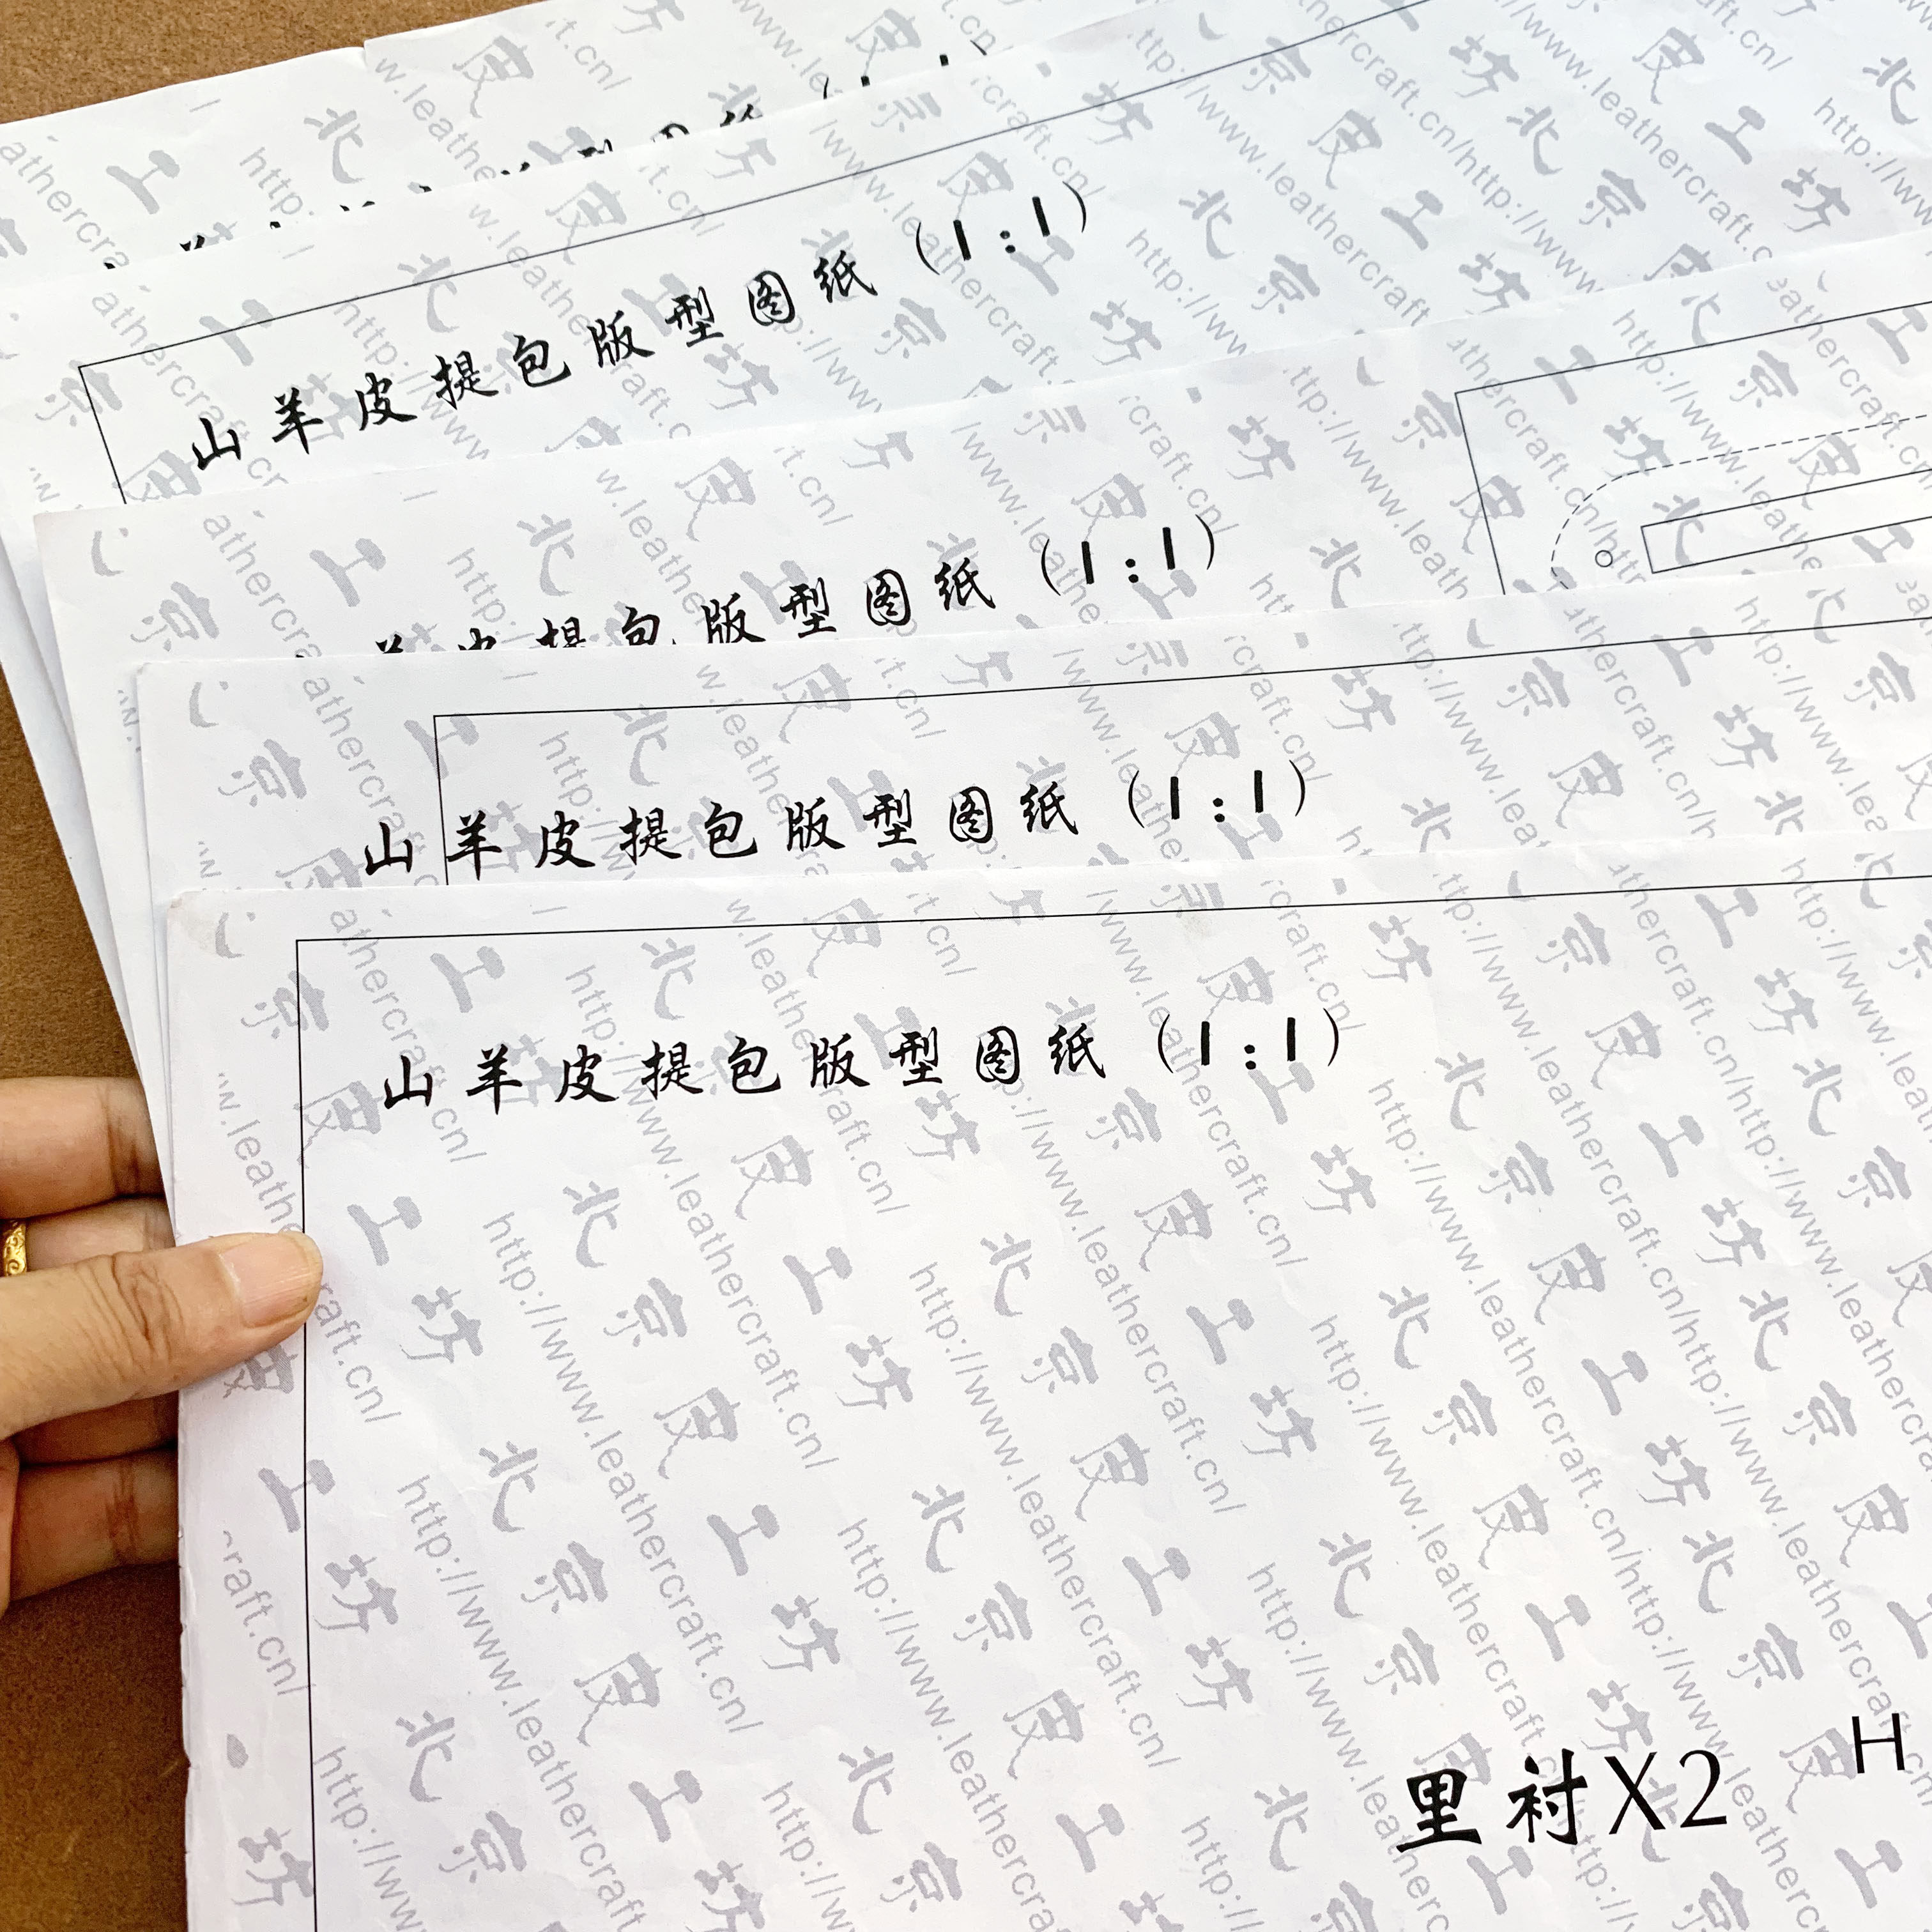 山羊皮提包版型图纸（1:1）
版型图纸（1:1）
山羊皮提包版型图纸（1:1）
山羊皮提包版型图纸（1:1）
里衬X2
H
北京皮工坊
http://www.leathercraft.cn/